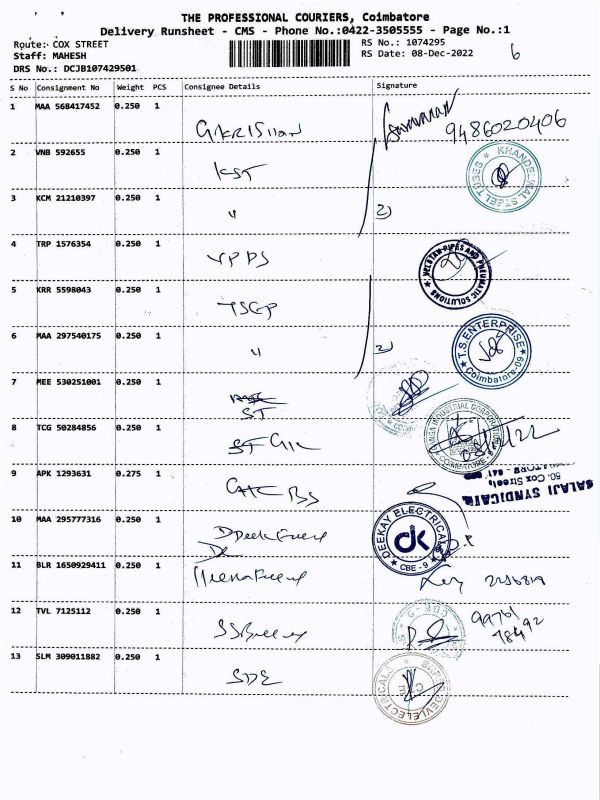 THE PROFESSIONAL COURIERS, Coimbatore
Delivery Runsheet - CMS - Phone No.:0422-3505555 - Page No.:1
Route: COX STREET
RS No.: 1074295
Staff: MAHESH
RS Date: 08-Dec-2022
6
DRS No.: DCJB107429501
S No Consignment No Weight PCS Consignee Details Signature
1 MAA 568417452 0.250 1
9486020406
2 VNB 592655 0.250 1 KST
KHANDELWAL STEEL TUBES
3 KCM 21210397 0.250 1 " 2)
4 TRP 1576354 0.250 1 VPPS
VELSTAN PIPES AND PNEUMATIC SOLUTIONS
5 KRR 5598043 0.250 1 TSGP
6 MAA 297540175 0.250 1 " 2)
T.S ENTERPRISE
Coimbatore-09
7 MEE 530251001 0.250 1 ST
8 TCG 50284856 0.250 1
INDUSTRIAL CORPORATION
COIMBATORE
9 APK 1293631 0.275 1
BALAJI SYNDICATE
50, Cox Street,
10 MAA 295777316 0.250 1
DEEKAY ELECTRICALS
dk
CBE - 9
11 BLR 1650929411 0.250 1
12 TVL 7125112 0.250 1
99761
78492
13 SLM 309011882 0.250 1 SDE
SHRI DEVI ELECTRICALS